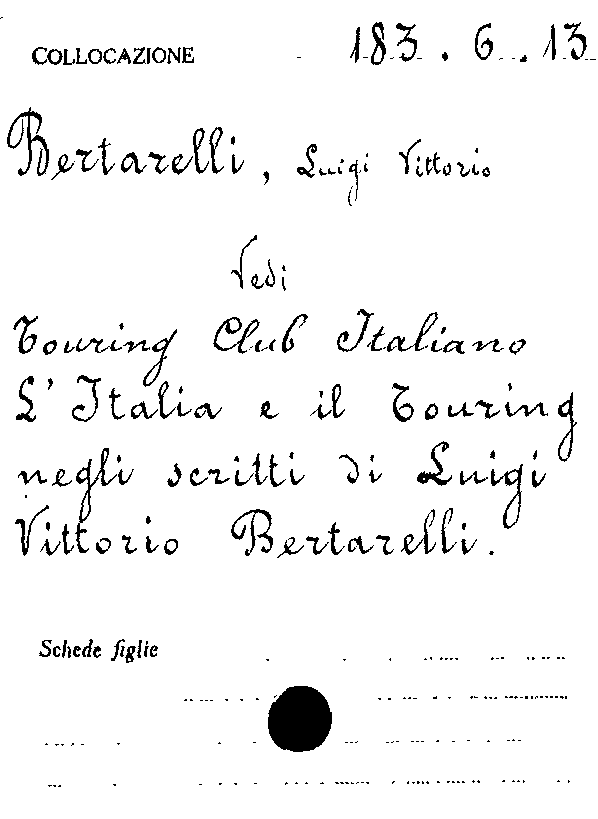 COLLOCAZIONE 183.6.13
Bertarelli, Luigi Vittorio
Vedi
Touring Club Italiano
L'Italia e il Touring
negli scritti di Luigi
Vittorio Bertarelli.
Schede figlie